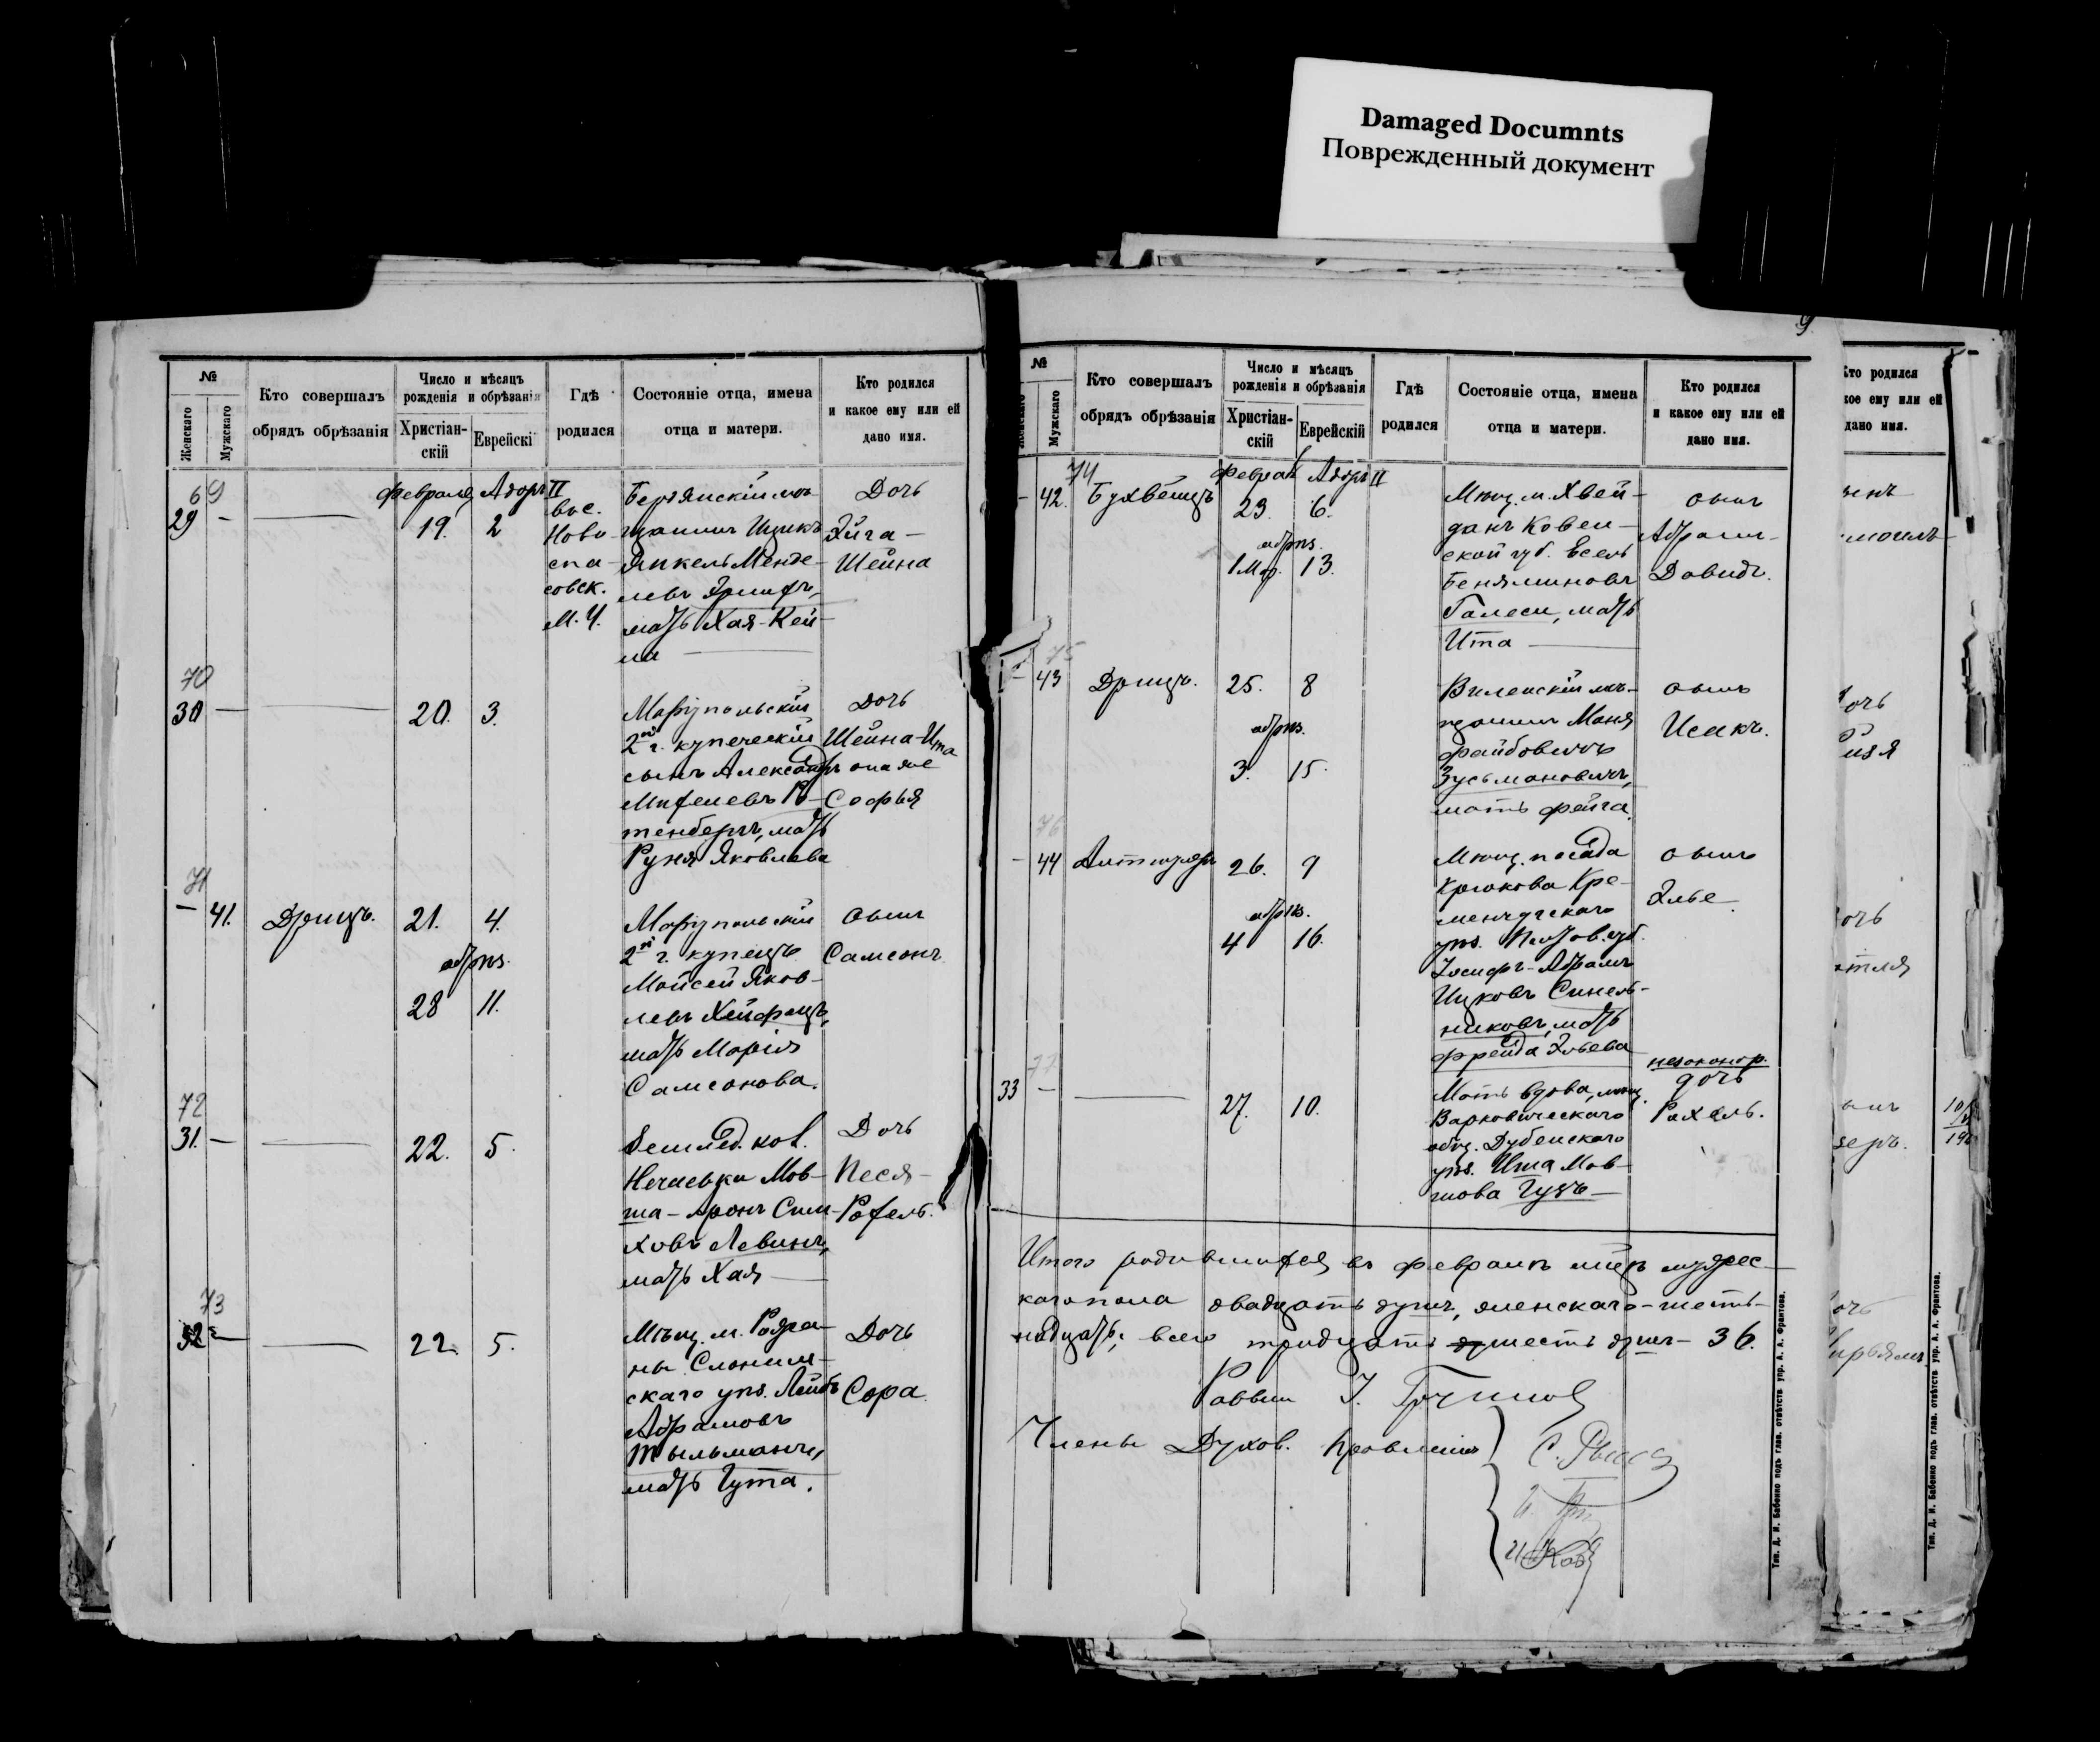 Damaged Documnts
Поврежденный документ
№
Женскаго
Мужскаго
Кто совершалъ
обрядъ обрѣзанія
Число и мѣсяцъ
рожденія и обрѣзанія
Христіан-
скій
Еврейскі
Гдѣ
родился
Состояніе отца, имена
отца и матери.
Кто родился
и какое ему или ей
дано имя.
69
29 -
Февраля Адоръ II
19. 2
вос.
Ново-
спа-
совск.
М. У.
Бердянскій мѣ-
щанинъ Ицикъ
Янкель Менде-
левъ
мать Хая-Кей-
ла
Дочь
Эйга-
Шейна
70
30 -
20. 3.
Маріупольскій
2й г. купеческій
сынъ Александръ
Михелевъ Ро-
тенбергъ, мать
Руня Яковлева
Дочь
Шейна-Ита
она же
Софья
71
- 41.
Дрицъ.
21. 4.
обрѣз.
28 11.
Маріупольскій
2й г. купецъ
Мойсей Яков-
левъ Хейфецъ,
мать Марія
Самсонова.
сынъ
Самсонъ
72
31. -
22. 5.
Землед. кол.
Нечаевки Мов-
ша-Аронъ Сим-
ховъ Левинъ,
мать Хая
Дочь
Песя-
Рохель.
73
32 -
22. 5.
Мѣщ. м. Ружа-
ны Слоним-
скаго уѣз. Лейбъ
Абрамовъ
Тыльманъ,
мать Гута.
Дочь
Сора
9
№
Женскаго
Мужскаго
Кто совершалъ
обрядъ обрѣзанія
Число и мѣсяцъ
рожденія и обрѣзанія
Христіан-
скій
Еврейскій
Гдѣ
родился
Состояніе отца, имена
отца и матери.
Кто родился
и какое ему или ей
дано имя.
74
- 42.
Бухвѣцъ
Феврал Адоръ II
23. 6.
обрѣз.
1 Мар. 13.
Мѣщ. м. Хвей-
данъ Ковен-
ской губ. Іосель
Беняминовъ
Галеси, мать
Ита
сынъ
Абрамъ-
Давидъ.
75
- 43
Дрицъ.
25. 8
обрѣз.
3. 15.
Виленскій мѣ-
щанинъ Моня
Файбовичъ
Зусьмановичъ,
мать Фейга.
сынъ
Исакъ.
76
- 44
Альтшулеръ
26. 9
обрѣз.
4 16.
Мѣщ. посада
Крюкова Кре-
менчугскаго
уѣз. Полтов. губ.
Іосифъ-Абрамъ
Ицковъ Синель-
никовъ, мать
Фрейда Эльева
сынъ
Элье
77
33 -
27. 10.
Мать вдова, мѣщ.
Варковическаго
общ. Дубенскаго
уѣз. Ита Мов-
шова Гузъ
незаконор.
дочь
Рахель.
Итого родившихся въ Февралѣ мѣц. мужес-
каго пола двадцать душъ, женскаго - шест-
надцать; всего тридцать шесть душъ - 36.
Раввинъ
Члены Духов. Правленія
Тип. Д. И. Бабенко подъ глав. отвѣтств. упр. А. А. Франтова.
Кто родился
кое ему или ей
дано имя.
очь
очь
Тип. Д. И. Бабенко подъ глав. отвѣтств. упр. А. А. Франтова.